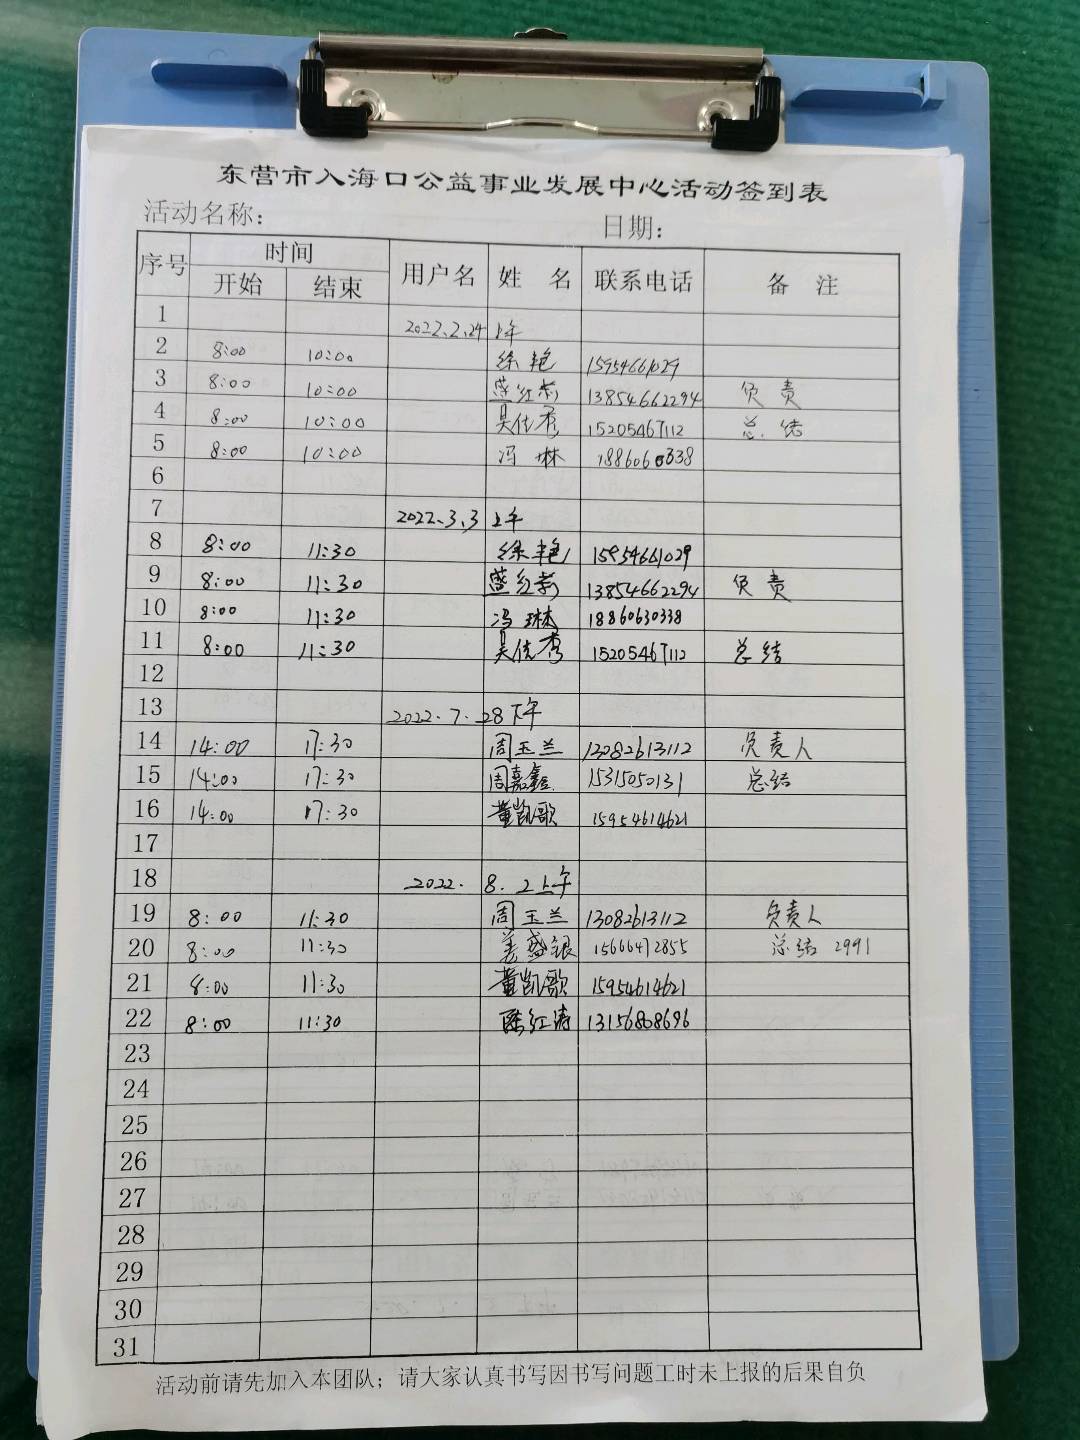 东营市入海口公益事业发展中心活动签到表
活动名称: 日期:
序号 时间 用户名 姓 名 联系电话 备 注
开始 结束
1 2022.2.24 上午
2 8:00 10:00 徐艳 15954661029
3 8:00 10:00 盛红莉 13854662294 负责
4 8:00 10:00 吴佳秀 15205467112 总结
5 8:00 10:00 冯琳
6
7 2022.3.3 上午
8 8:00 11:30 徐艳 15954661029
9 8:00 11:30 盛红莉 13854662294 负责
10 8:00 11:30 冯琳 18860630338
11 8:00 11:30 吴佳秀 15205467112 总结
12
13 2022.7.28下午
14 14:00 17:30 周玉兰 13082613112 负责人
15 14:00 17:30 周嘉鑫 15315050131 总结
16 14:00 17:30 董凯歌 15954614621
17
18 2022. 8.2上午
19 8:00 11:30 周玉兰 13082613112 负责人
20 8:00 11:30 姜盛银 15666472855 总结 2991
21 8:00 11:30 董凯歌 15954614621
22 8:00 11:30 陈红涛 13156808696
23
24
25
26
27
28
29
30
31
活动前请先加入本团队；请大家认真书写因书写问题工时未上报的后果自负